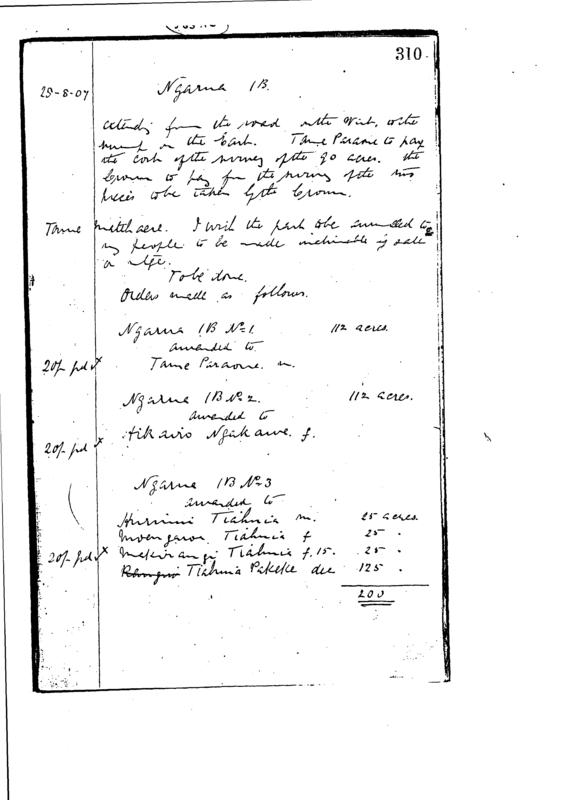 310
29-8-07 Ngarua 1B.
from the road on the West, to the
in the East. Tame Paraone to pay
the cost of the survey of the 90 acres. The
Crown to pay for the survey of the two
pieces to be taken by the Crown.
Tame I wish the part to be awarded to
my people to be made inalienable by sale
or
To be done.
Orders made as follows.
Ngarua 1B No 1. 112 acres.
awarded to
20/- pd x Tame Paraone. m.
Ngarua 1B No 2. 112 acres.
awarded to
20/- pd x Hikairo Ngakawe. f.
Ngarua 1B No 3
awarded to
Tiahuia m. 25 acres.
Tiahuia f 25 "
20/- pd x Mekirangi Tiahuia f. 15. 25 "
Tiahuia Pakeke dec 125 "
200